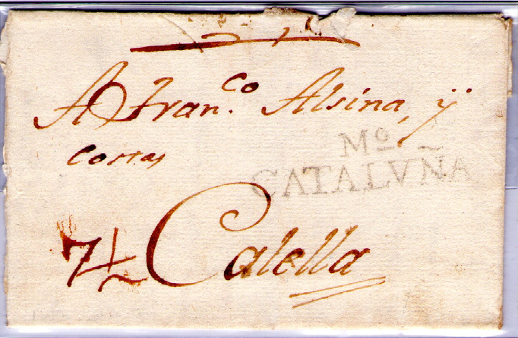 A Fran.co Alsina, y
Costas
Mo
CATALVÑA
7½ Calella